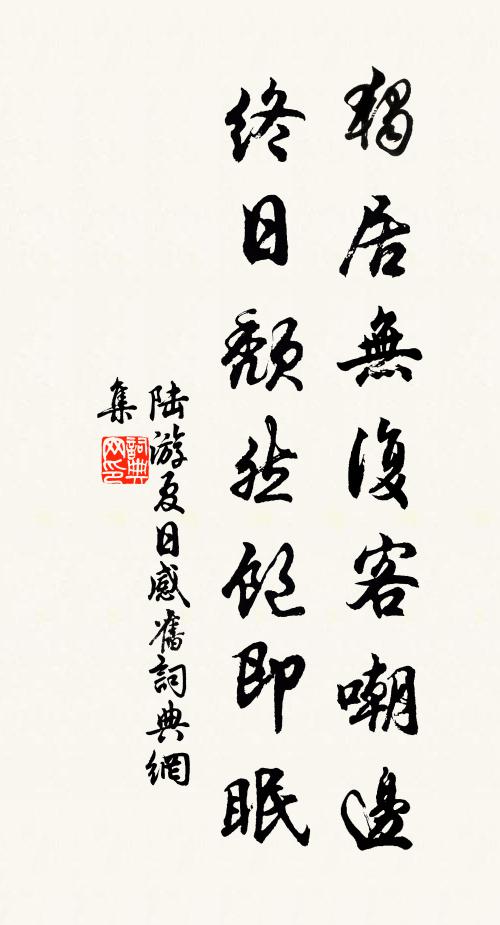 獨居無復客嘲邊
終日頹然飽即眠
陸游夏日感舊詞典網
集
詞典網印